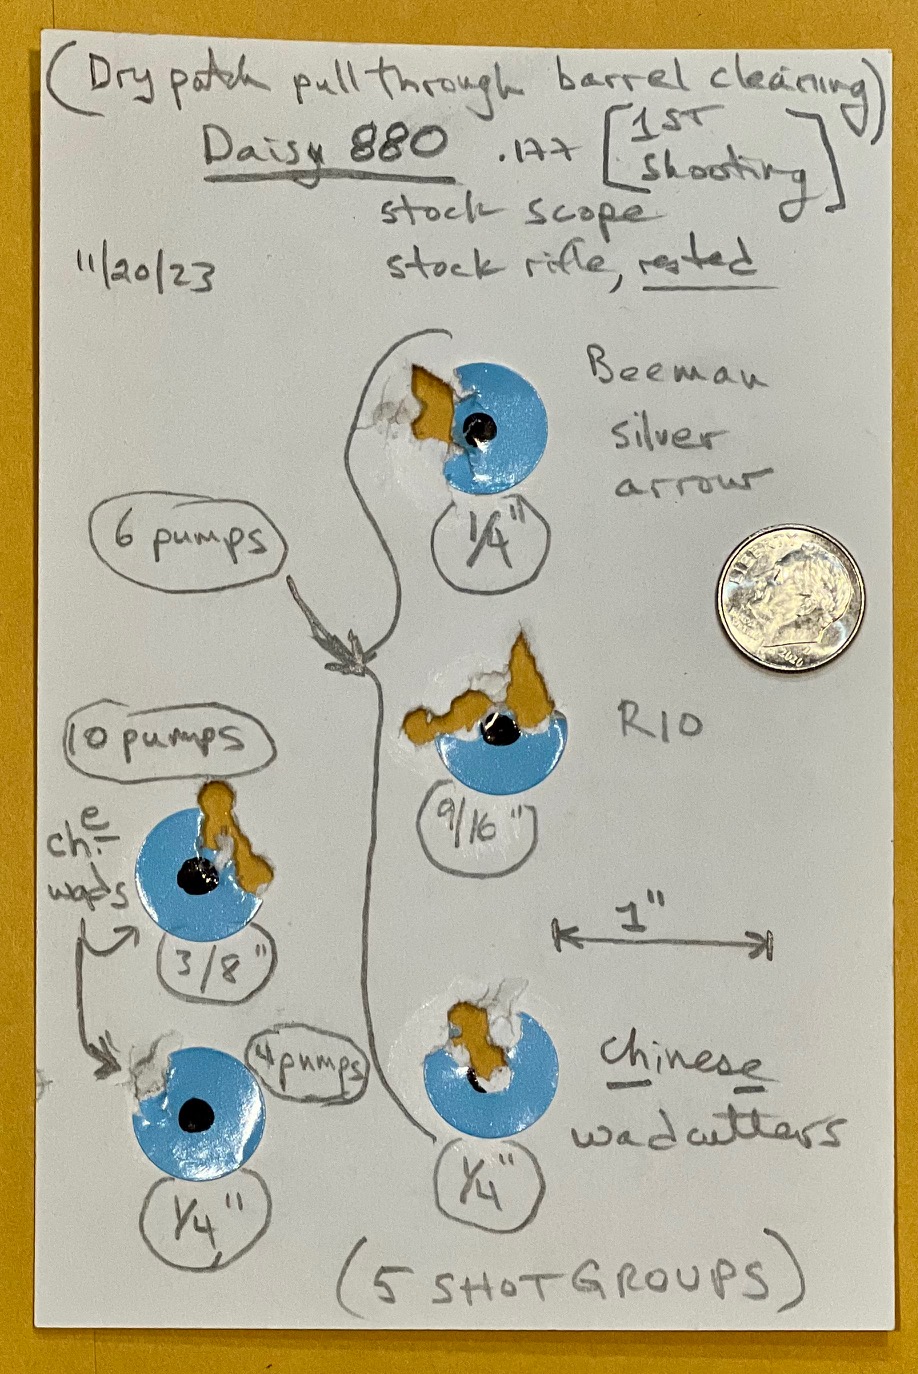 (Dry patch pull through barrel cleaning)
Daisy 880 .177 [1ST
shooting]
stock scope
11/20/23
stock rifle, rested
Beeman
silver
arrow
1/4"
6 pumps
2020
R10
10 pumps
9/16"
che
wads
3/8"
1"
4 pumps
Chinese
wadcutters
1/4"
1/4"
(5 SHOT GROUPS)